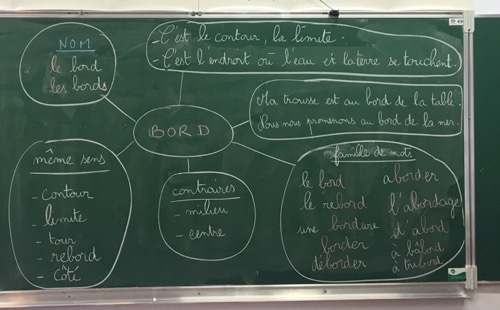 NOM
le bord
les bords
- C'est le contour, la limite.
- C'est l'endroit où l'eau et la terre se touchent.
Ma trousse est au bord de la table.
Nous nous promenons au bord de la mer.
BORD
même sens
- contour
- limite
- tour
- rebord
- côté
contraires
- milieu
- centre
famille de mots
le bord
le rebord
une bordure
border
déborder
aborder
l'abordage
d'abord
à bâbord
à tribord